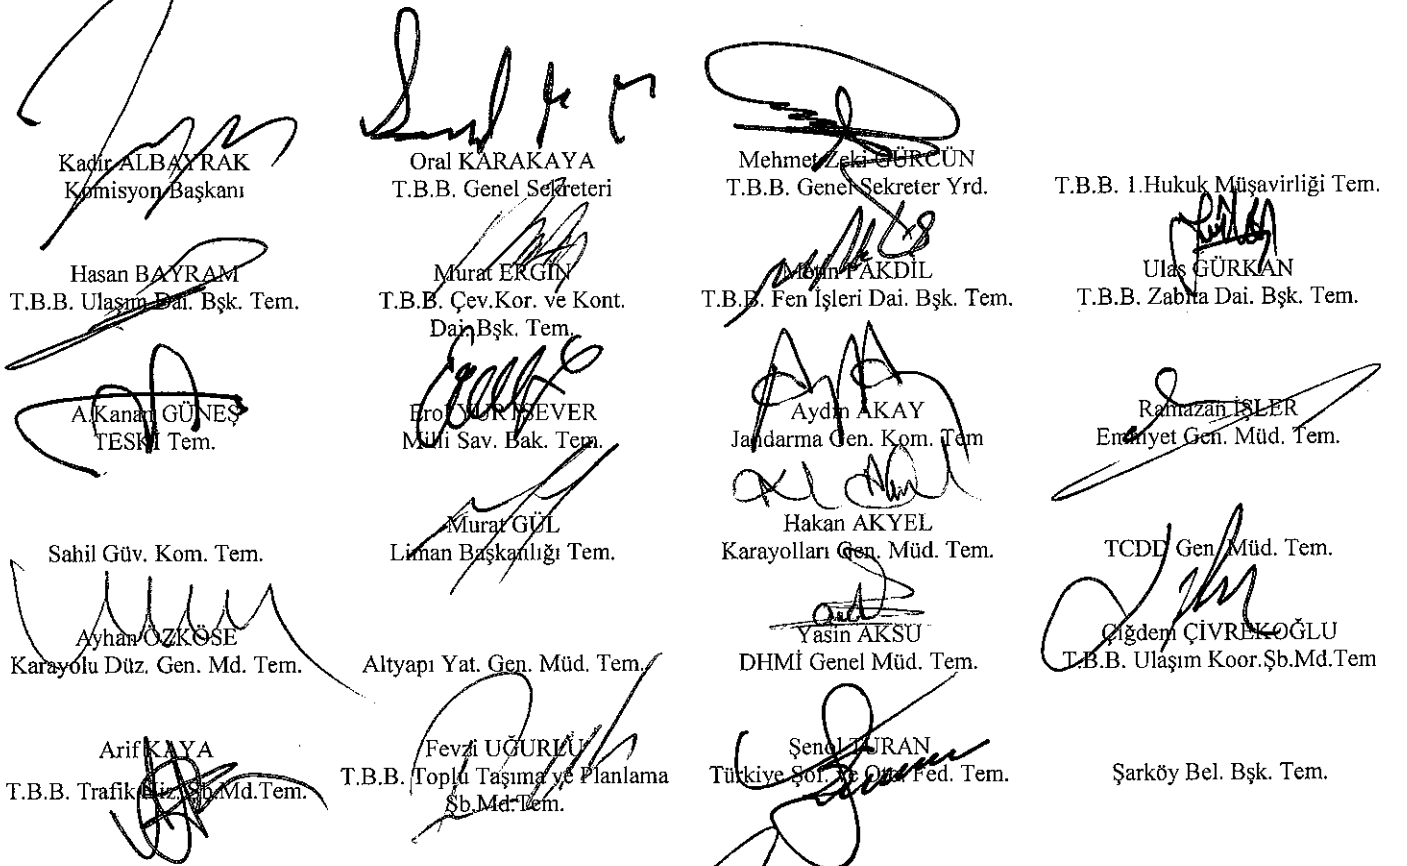 Kadir ALBAYRAK
Komisyon Başkanı
Oral KARAKAYA
T.B.B. Genel Sekreteri
Mehmet Zeki GÜRCÜN
T.B.B. Genel Sekreter Yrd.
T.B.B. 1.Hukuk Müşavirliği Tem.
Hasan BAYRAM
T.B.B. Ulaşım Dai. Bşk. Tem.
Murat ERGİN
T.B.B. Çev.Kor. ve Kont.
Dai.Bşk. Tem.
Metin PAKDİL
T.B.B. Fen İşleri Dai. Bşk. Tem.
Ulaş GÜRKAN
T.B.B. Zabıta Dai. Bşk. Tem.
A.Kanan GÜNEŞ
TESKİ Tem.
Erol YURTSEVER
Milli Sav. Bak. Tem.
Aydın AKAY
Jandarma Gen. Kom. Tem
Ramazan İŞLER
Emniyet Gen. Müd. Tem.
Sahil Güv. Kom. Tem.
Murat GÜL
Liman Başkanlığı Tem.
Hakan AKYEL
Karayolları Gen. Müd. Tem.
TCDD Gen. Müd. Tem.
Ayhan ÖZKÖSE
Karayolu Düz. Gen. Md. Tem.
Altyapı Yat. Gen. Müd. Tem.
Yasin AKSU
DHMİ Genel Müd. Tem.
Çiğdem ÇİVREKOĞLU
T.B.B. Ulaşım Koor.Şb.Md.Tem
Arif KAYA
T.B.B. Trafik Hiz. Şb.Md.Tem.
Fevzi UĞURLU
T.B.B. Toplu Taşıma ve Planlama
Şb.Md.Tem.
Şenol TURAN
Türkiye Şof. ve Oto. Fed. Tem.
Şarköy Bel. Bşk. Tem.